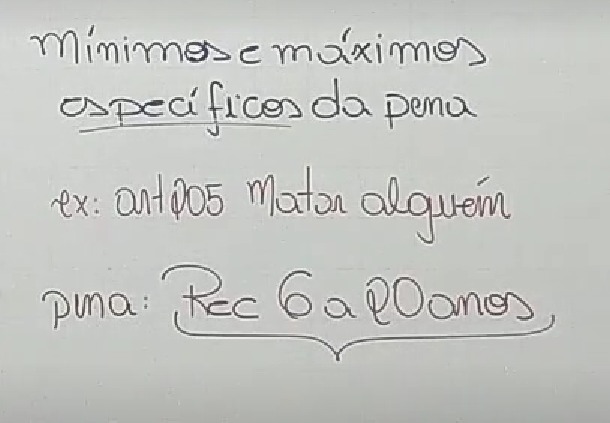 Mínimos e máximos
específicos da pena
ex: art 205 Matar alguém
pena: Rec 6 a 20 anos